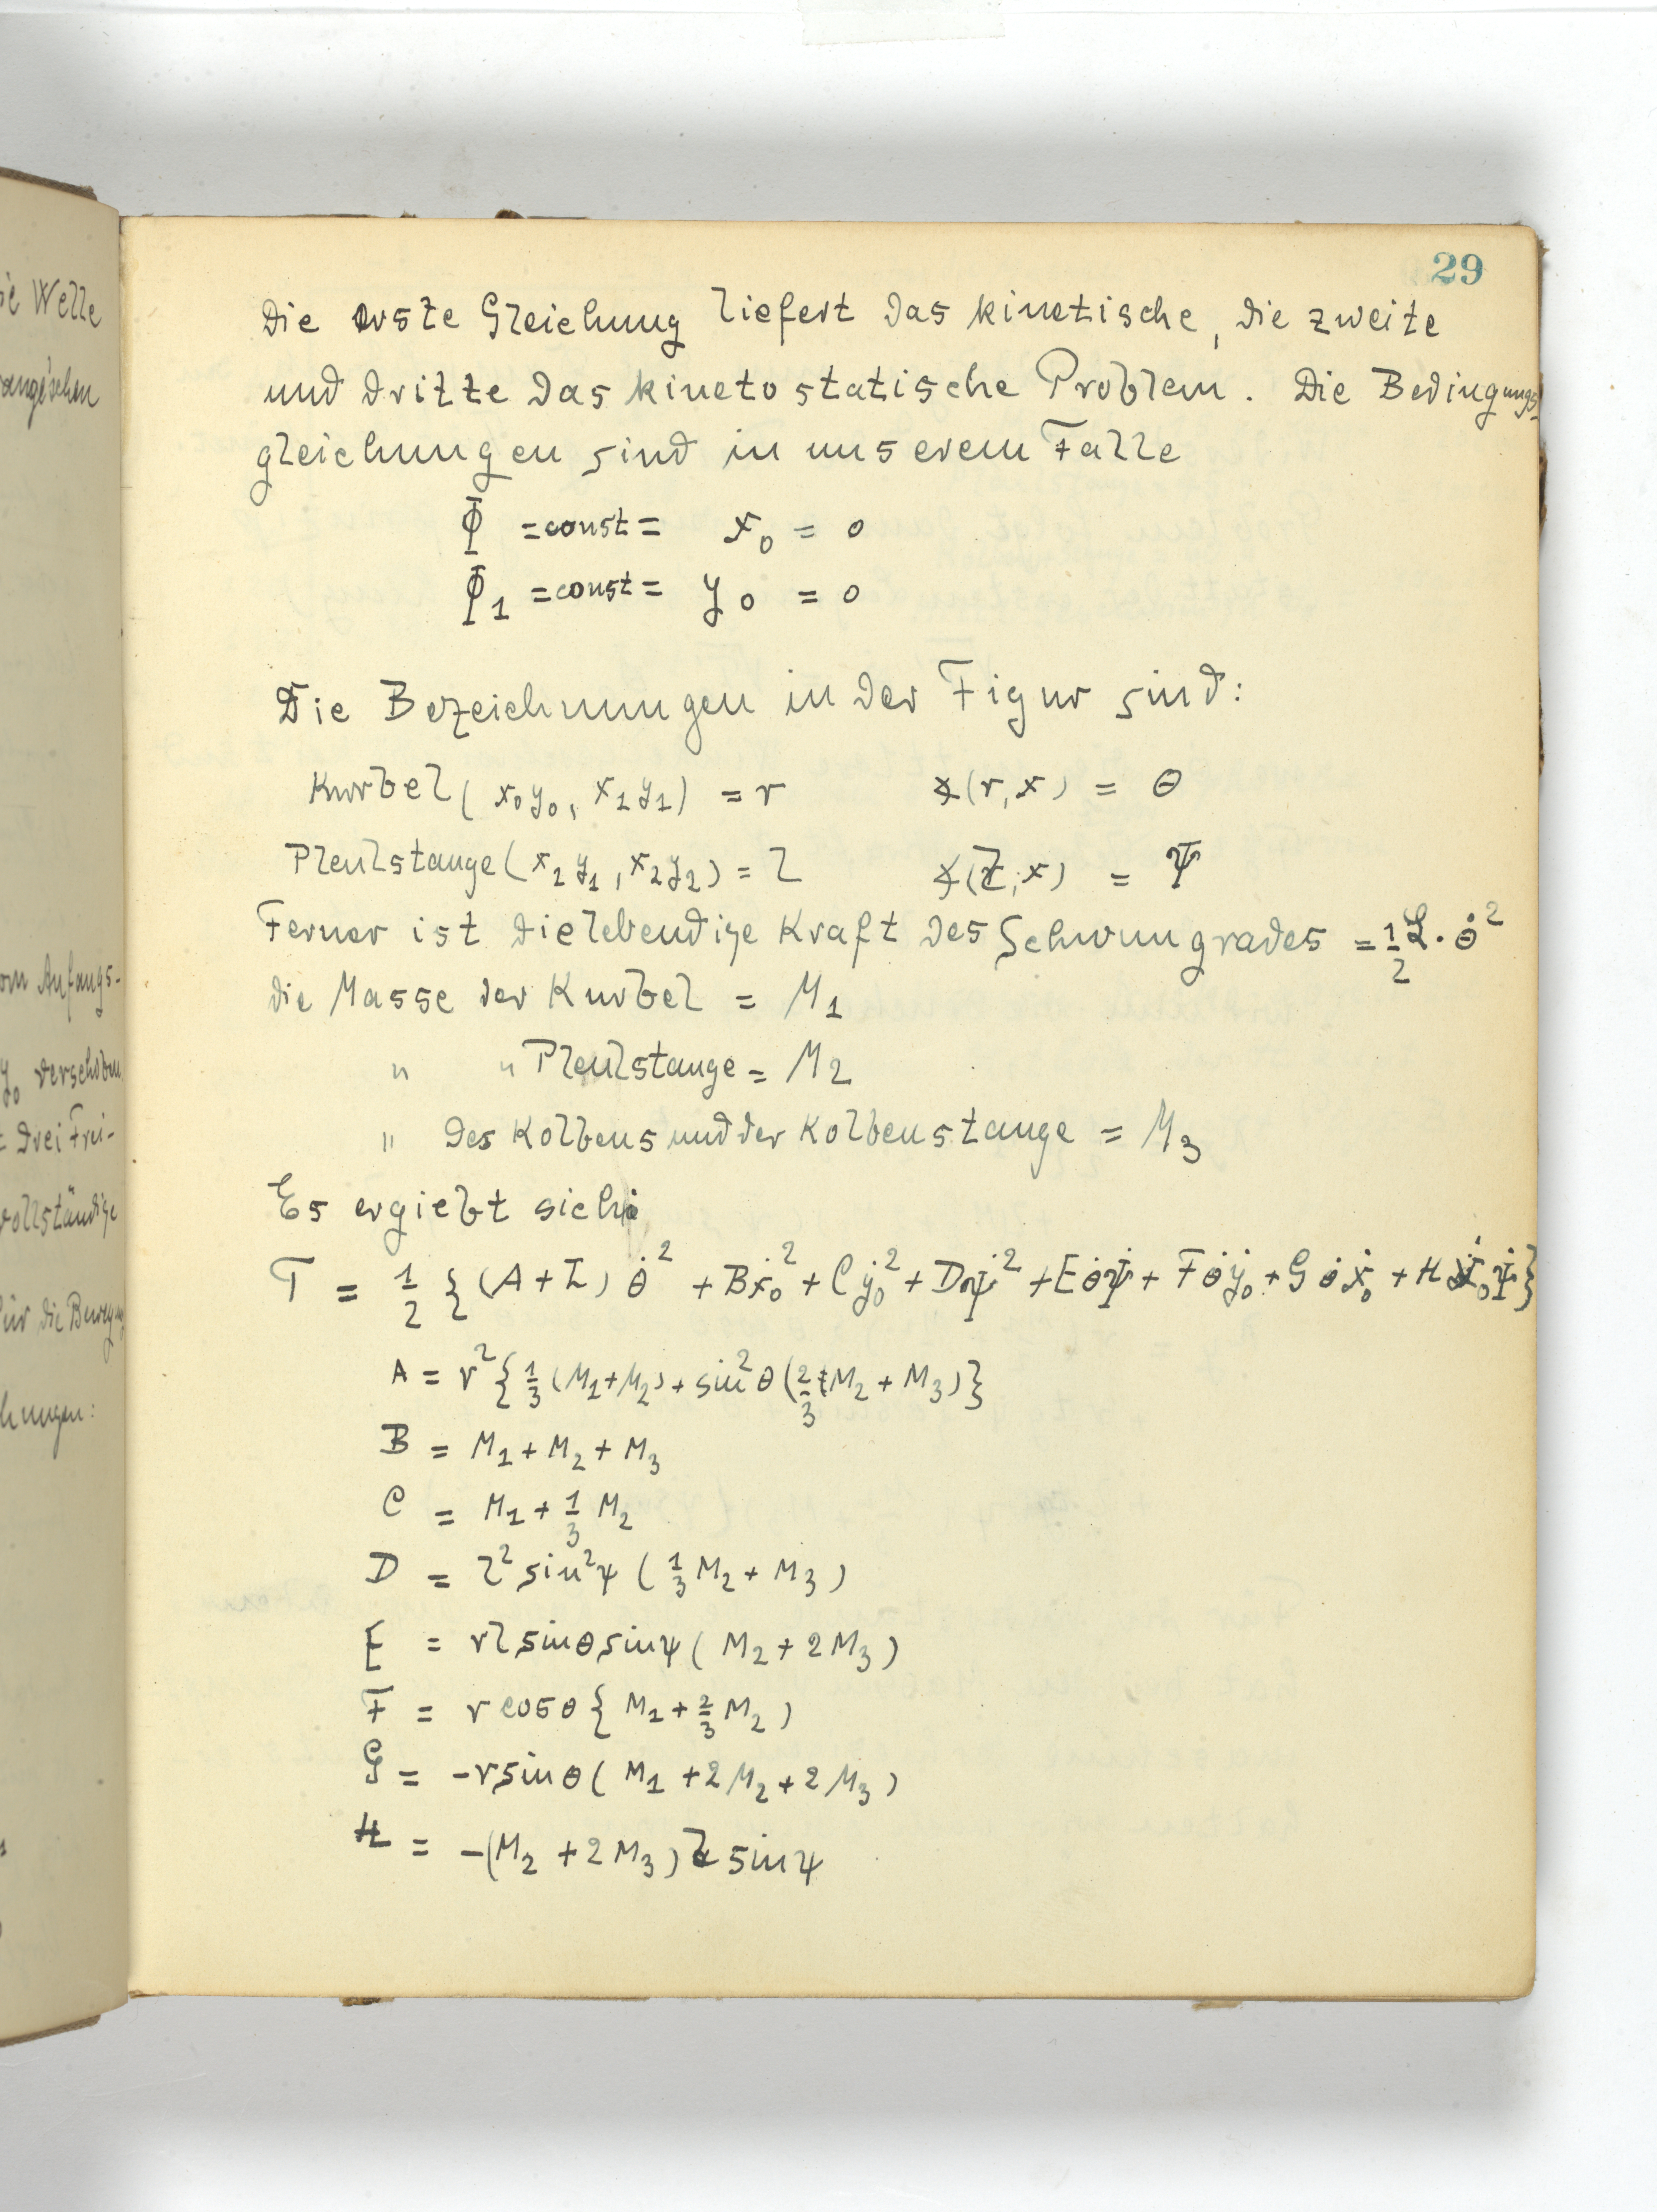 29
Die erste Gleichung liefert das kinetische, die zweite
und dritte das kinetostatische Problem. Die Bedingungs-
gleichungen sind in unserem Falle
Φ = const = x₀ = 0
Φ₁ = const = y₀ = 0
Die Bezeichnungen in der Figur sind:
Kurbel (x₀y₀, x₁y₁) = r ∢(r,x) = θ
Pleulstange (x₁y₁, x₂y₂) = l ∢(l,x) = Ψ
Ferner ist die lebendige Kraft des Schwungrades = 1/2 L · θ̇²
die Masse der Kurbel = M₁
" " Pleulstange = M₂
" des Kolbens und der Kolbenstange = M₃
Es ergiebt sich:
T = 1/2 {(A + L) θ̇² + Bẋ₀² + Cẏ₀² + Dψ̇² + Eθ̇ψ̇ + Fθ̇ẏ₀ + Gθ̇ẋ₀ + Hẋ₀ψ̇}
A = r² {1/3 (M₁ + M₂) + sin²θ (2/3 M₂ + M₃)}
B = M₁ + M₂ + M₃
C = M₁ + 1/3 M₂
D = l² sin²ψ (1/3 M₂ + M₃)
E = rl sinθ sinψ (M₂ + 2M₃)
F = r cosθ {M₁ + 2/3 M₂)
G = -r sinθ (M₁ + 2M₂ + 2M₃)
H = -(M₂ + 2M₃) l sinψ
ie Welle
angesehen
om Anfangs-
y₀ verschoben
t drei Frei-
vollständige
für die Bewegung
chungen: